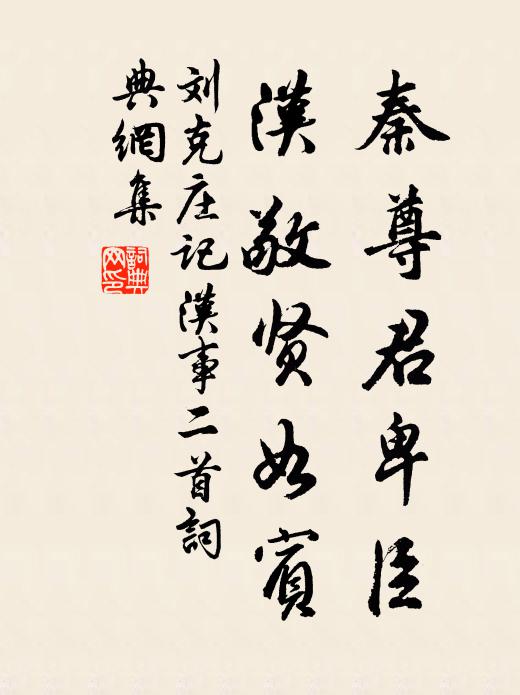 秦尊君卑臣
漢敬贤如賓
刘克庄記漢事二首詞
典網集
詞典網印